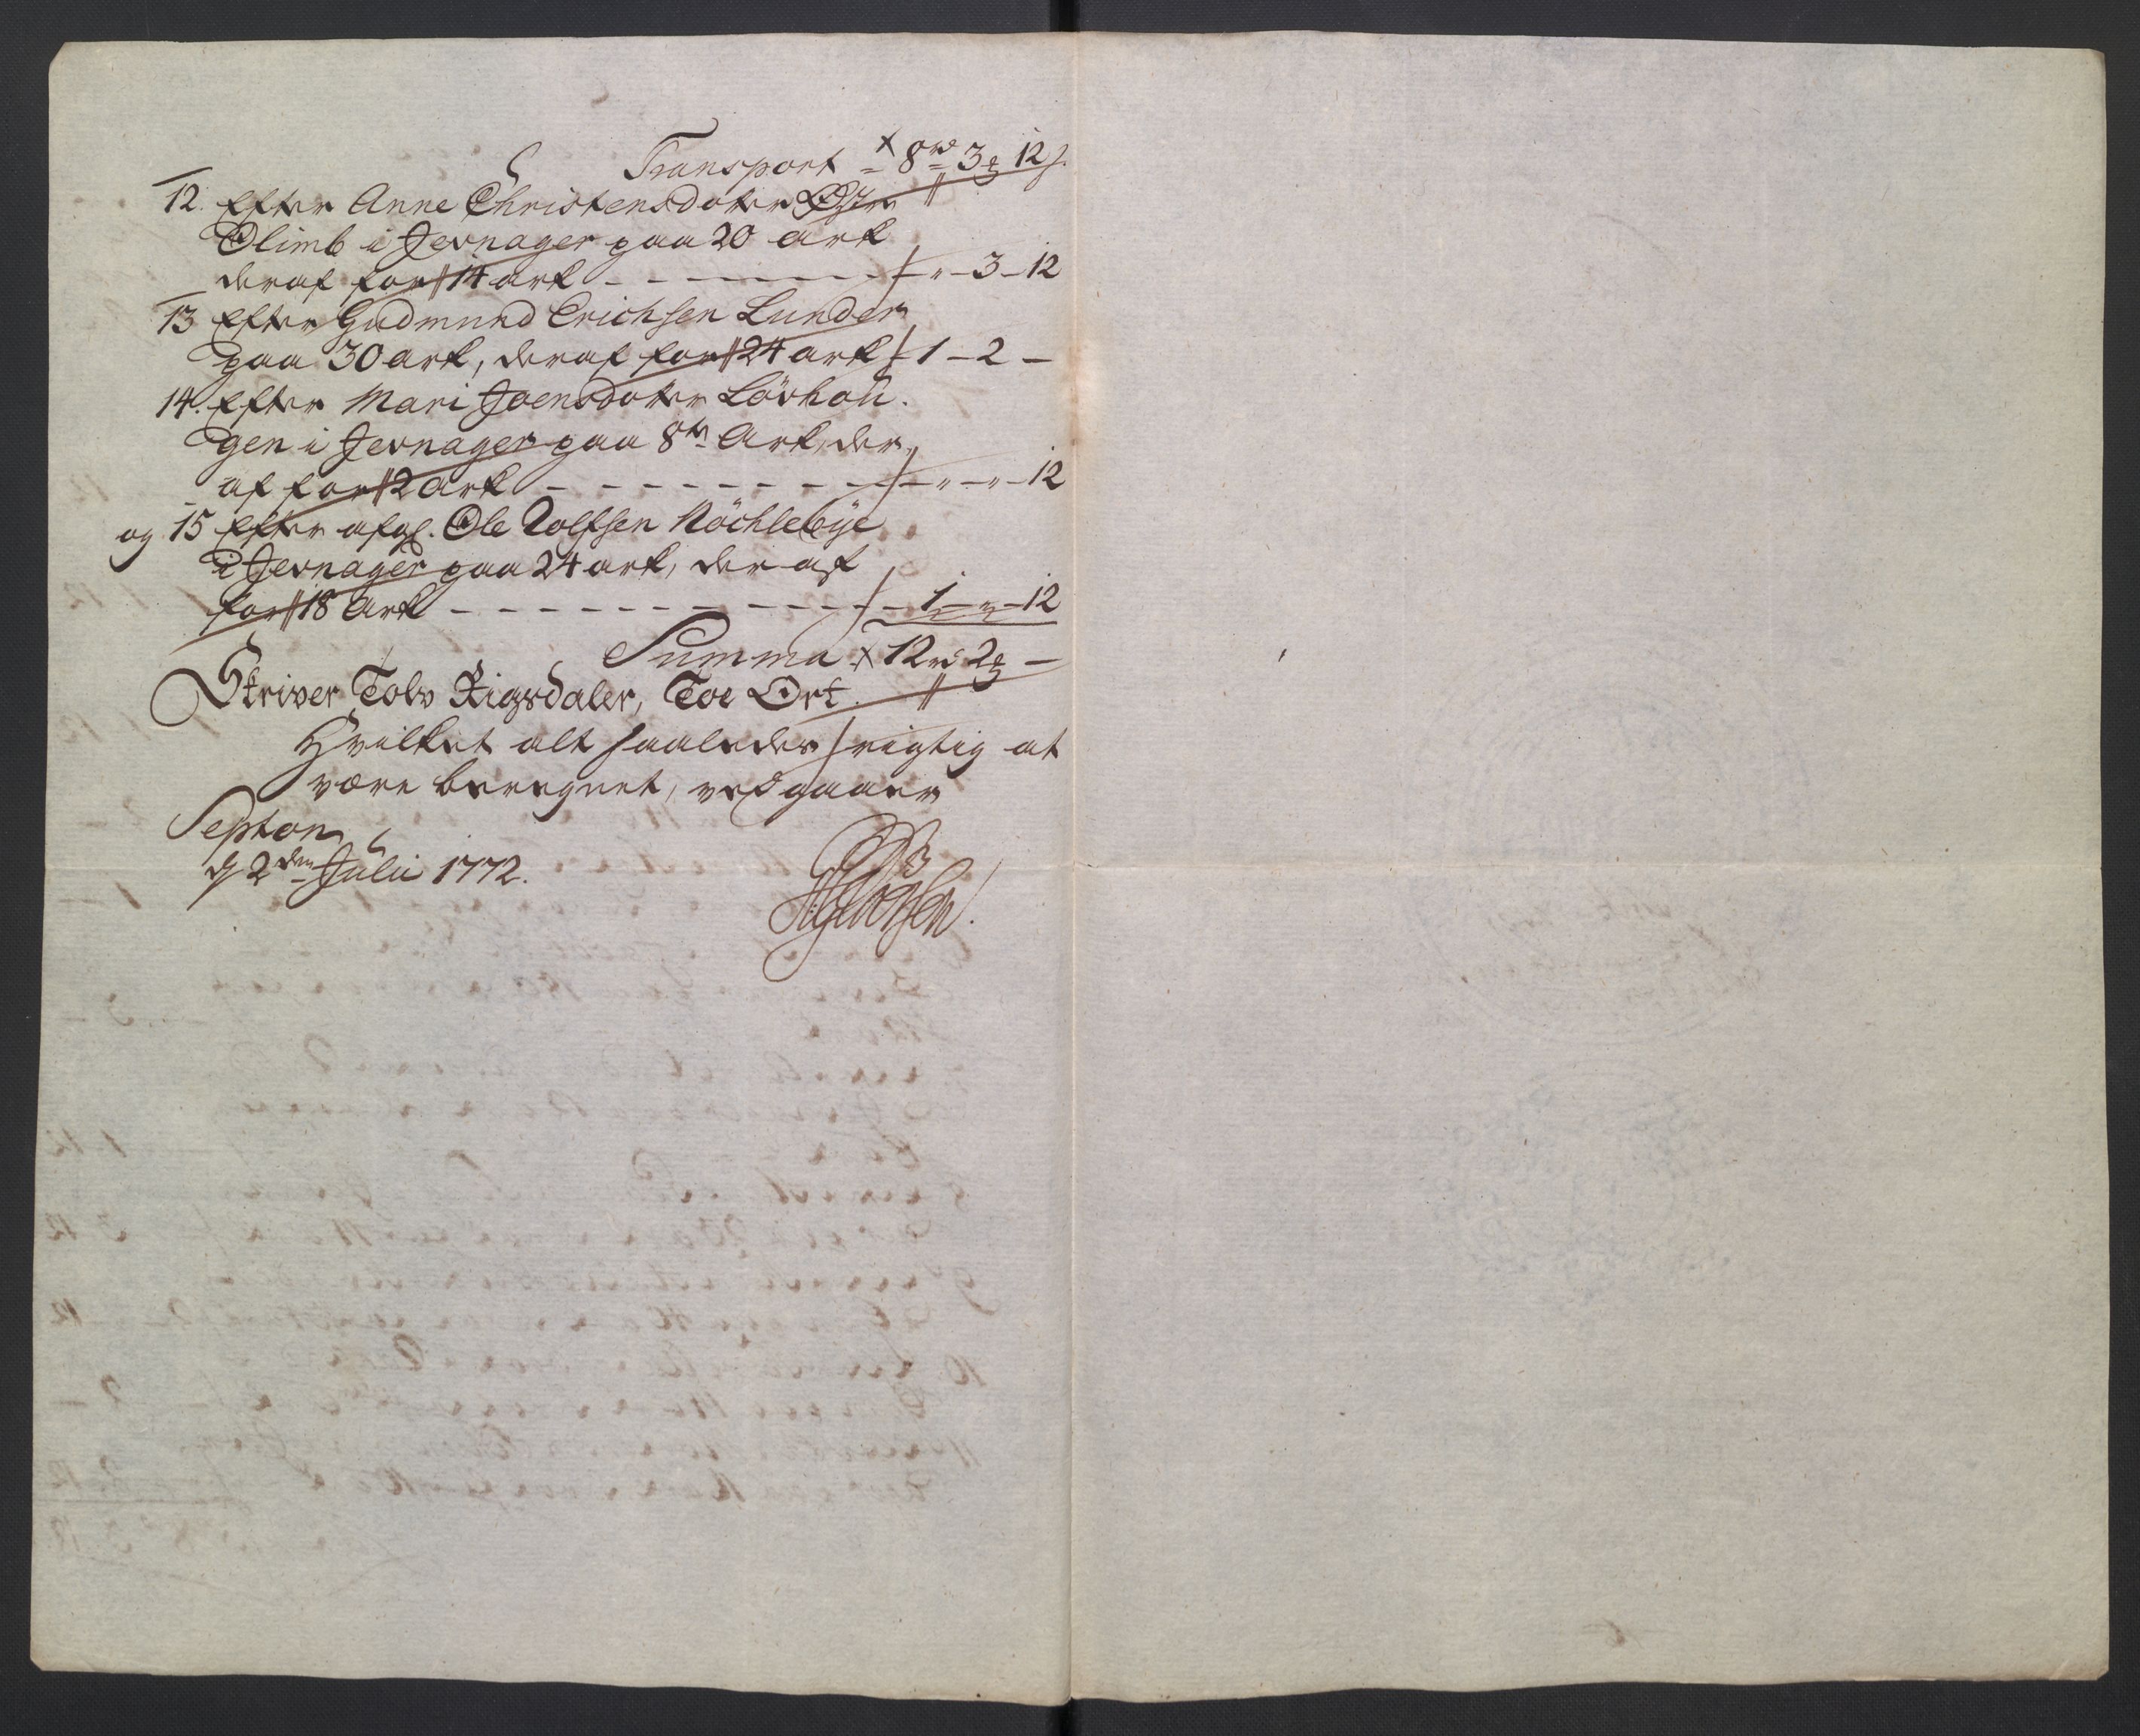 Transport - 8 rd 3 ₰ 12 s.
12. Efter Anne Christensdatter
Olimb i Jevnager paa 20 ark
deraf for 14 ark - - - - - " - 3 - 12
13 Efter Gudmund Erichsen Lunder
paa 30 ark, deraf for 24 ark 1 - 2 -
14. Efter Mari Joensdatter Lövhou-
gen i Jevnager paa 8te Ark, der-
af for 2 Ark - - - - - " - " - 12
og 15 Efter afg. Ole Rolfsen Möchlebÿe
i Jevnager paa 24 ark, der af
for 18 Ark - - - - - 1 - " - 12
Summa 12 rd 2 ₰ -
Skriver Tolv Rigsdaler, Toe Ort.
Hvilket alt saaledes rigtig at
være beregnet, vedgaaer
Septon
d 2den Julii 1772.